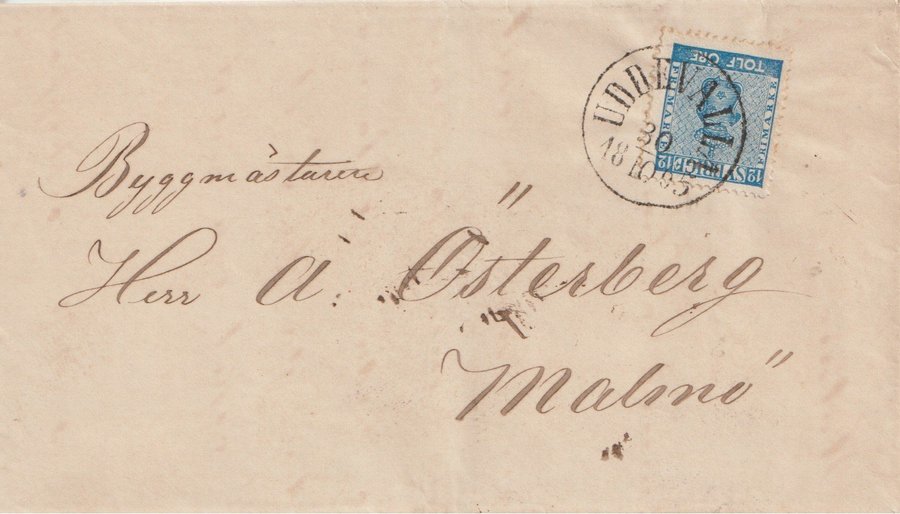 TOLF ÖRE
FRIMÄRKE
FRIMÄRKE
12 SVERIGE 12
UDDEVALLA
30
10
1865
Byggmästaren
Herr A. Österberg
Malmö